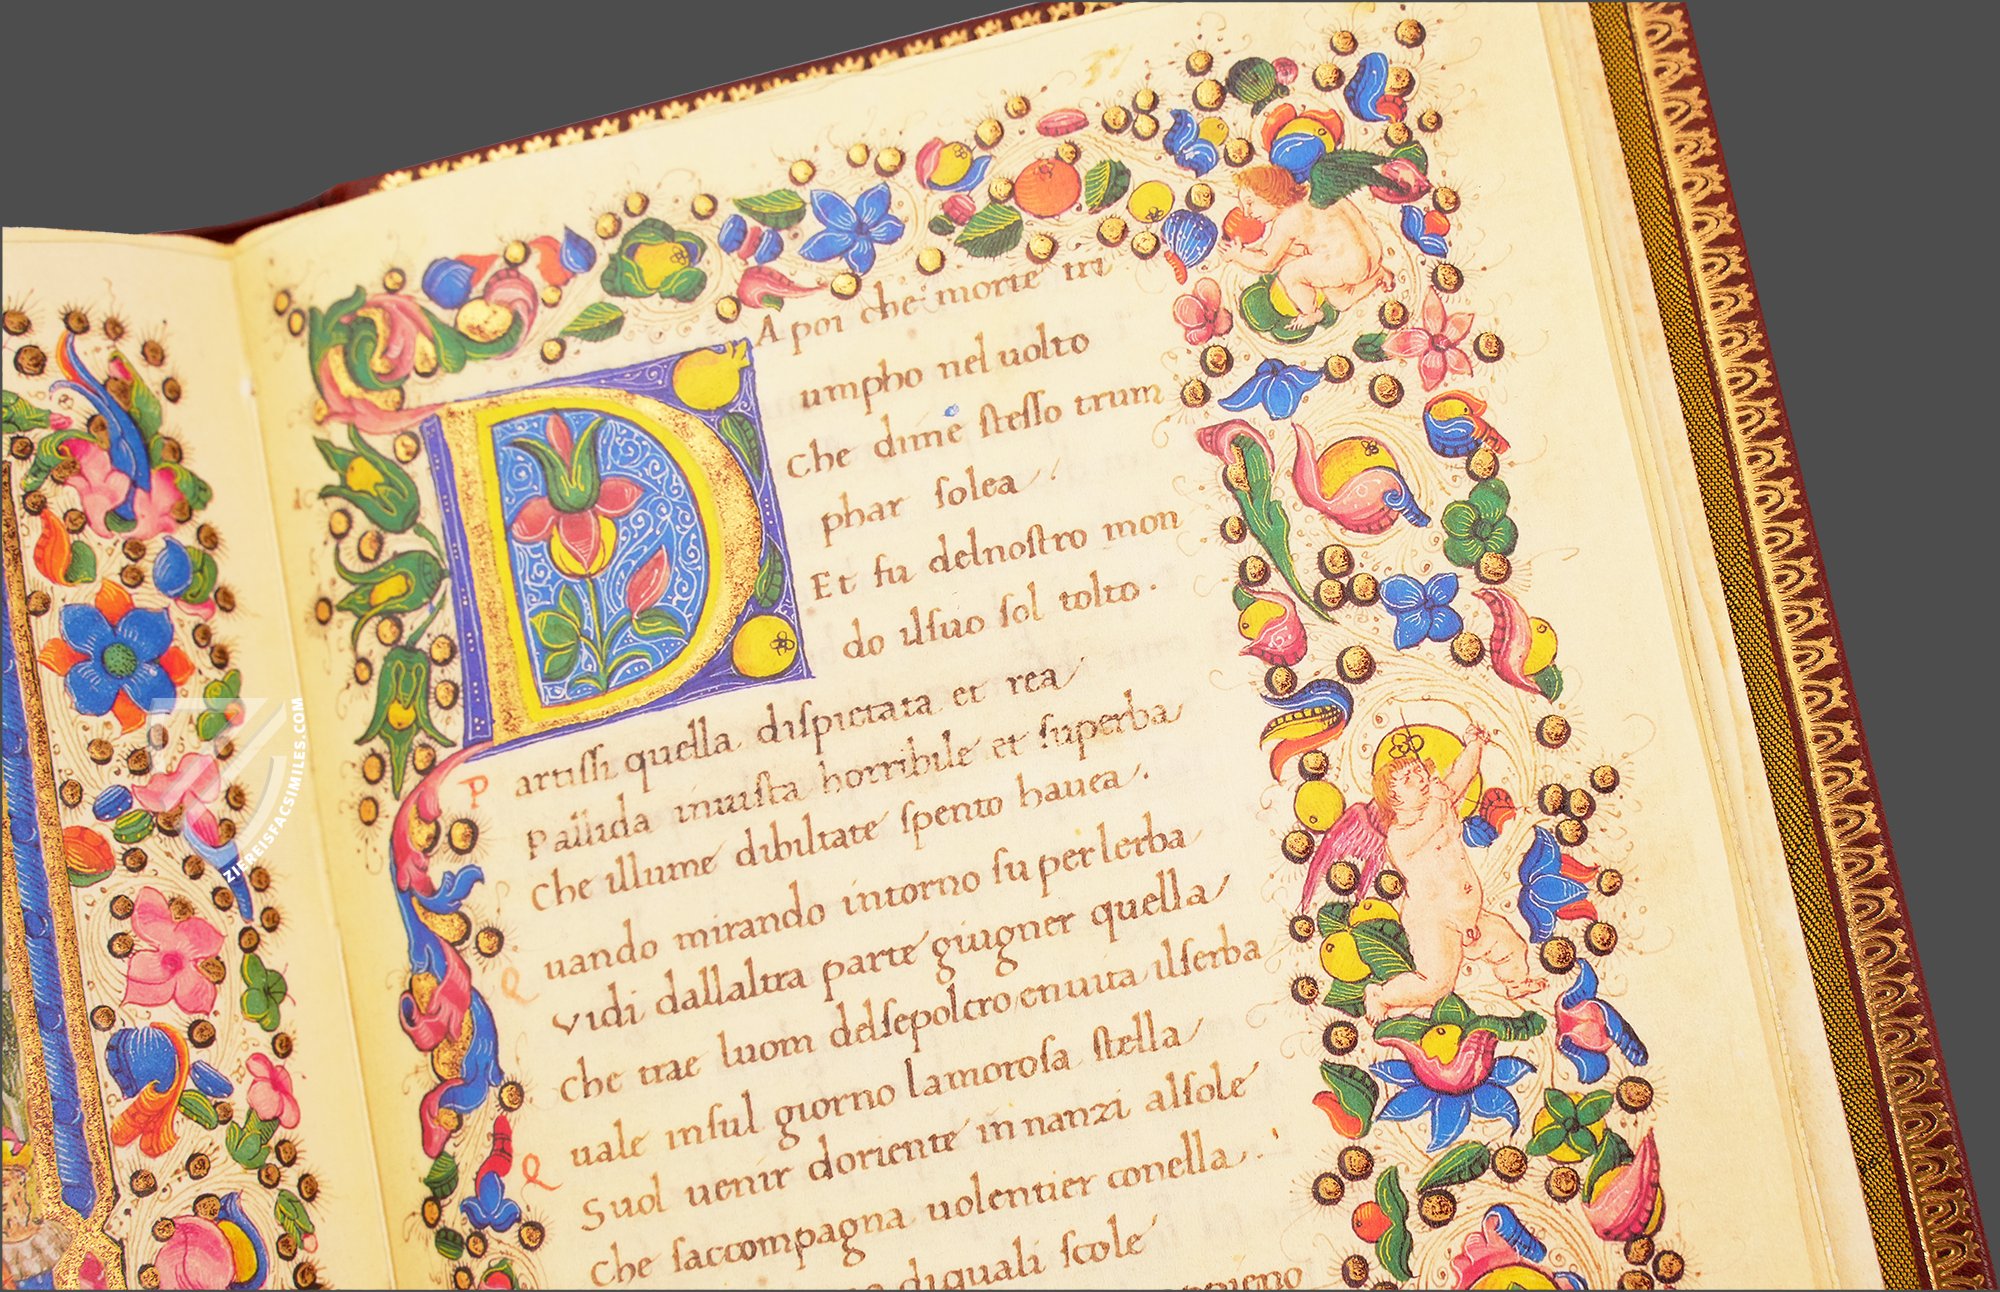 57
DA poi che morte tri
umpho nel uolto
Che dime stesso trium
phar solea.
Et fu delnostro mon
do ilsuo sol tolto.
Partissi quella dispietata et rea
Pallida inuista horribile et superba
Che illume dibiltate spento hauea.
Quando mirando intorno su per lerba
Vidi dallaltra parte giugner quella
Che trae luom delsepolcro en uita ilserba
Quale insul giorno lamorosa stella
Suol uenir doriente in nanzi alsole
Che saccompagna uolentier conella.
diquali scole
ZIEREISFACSIMILES.COM